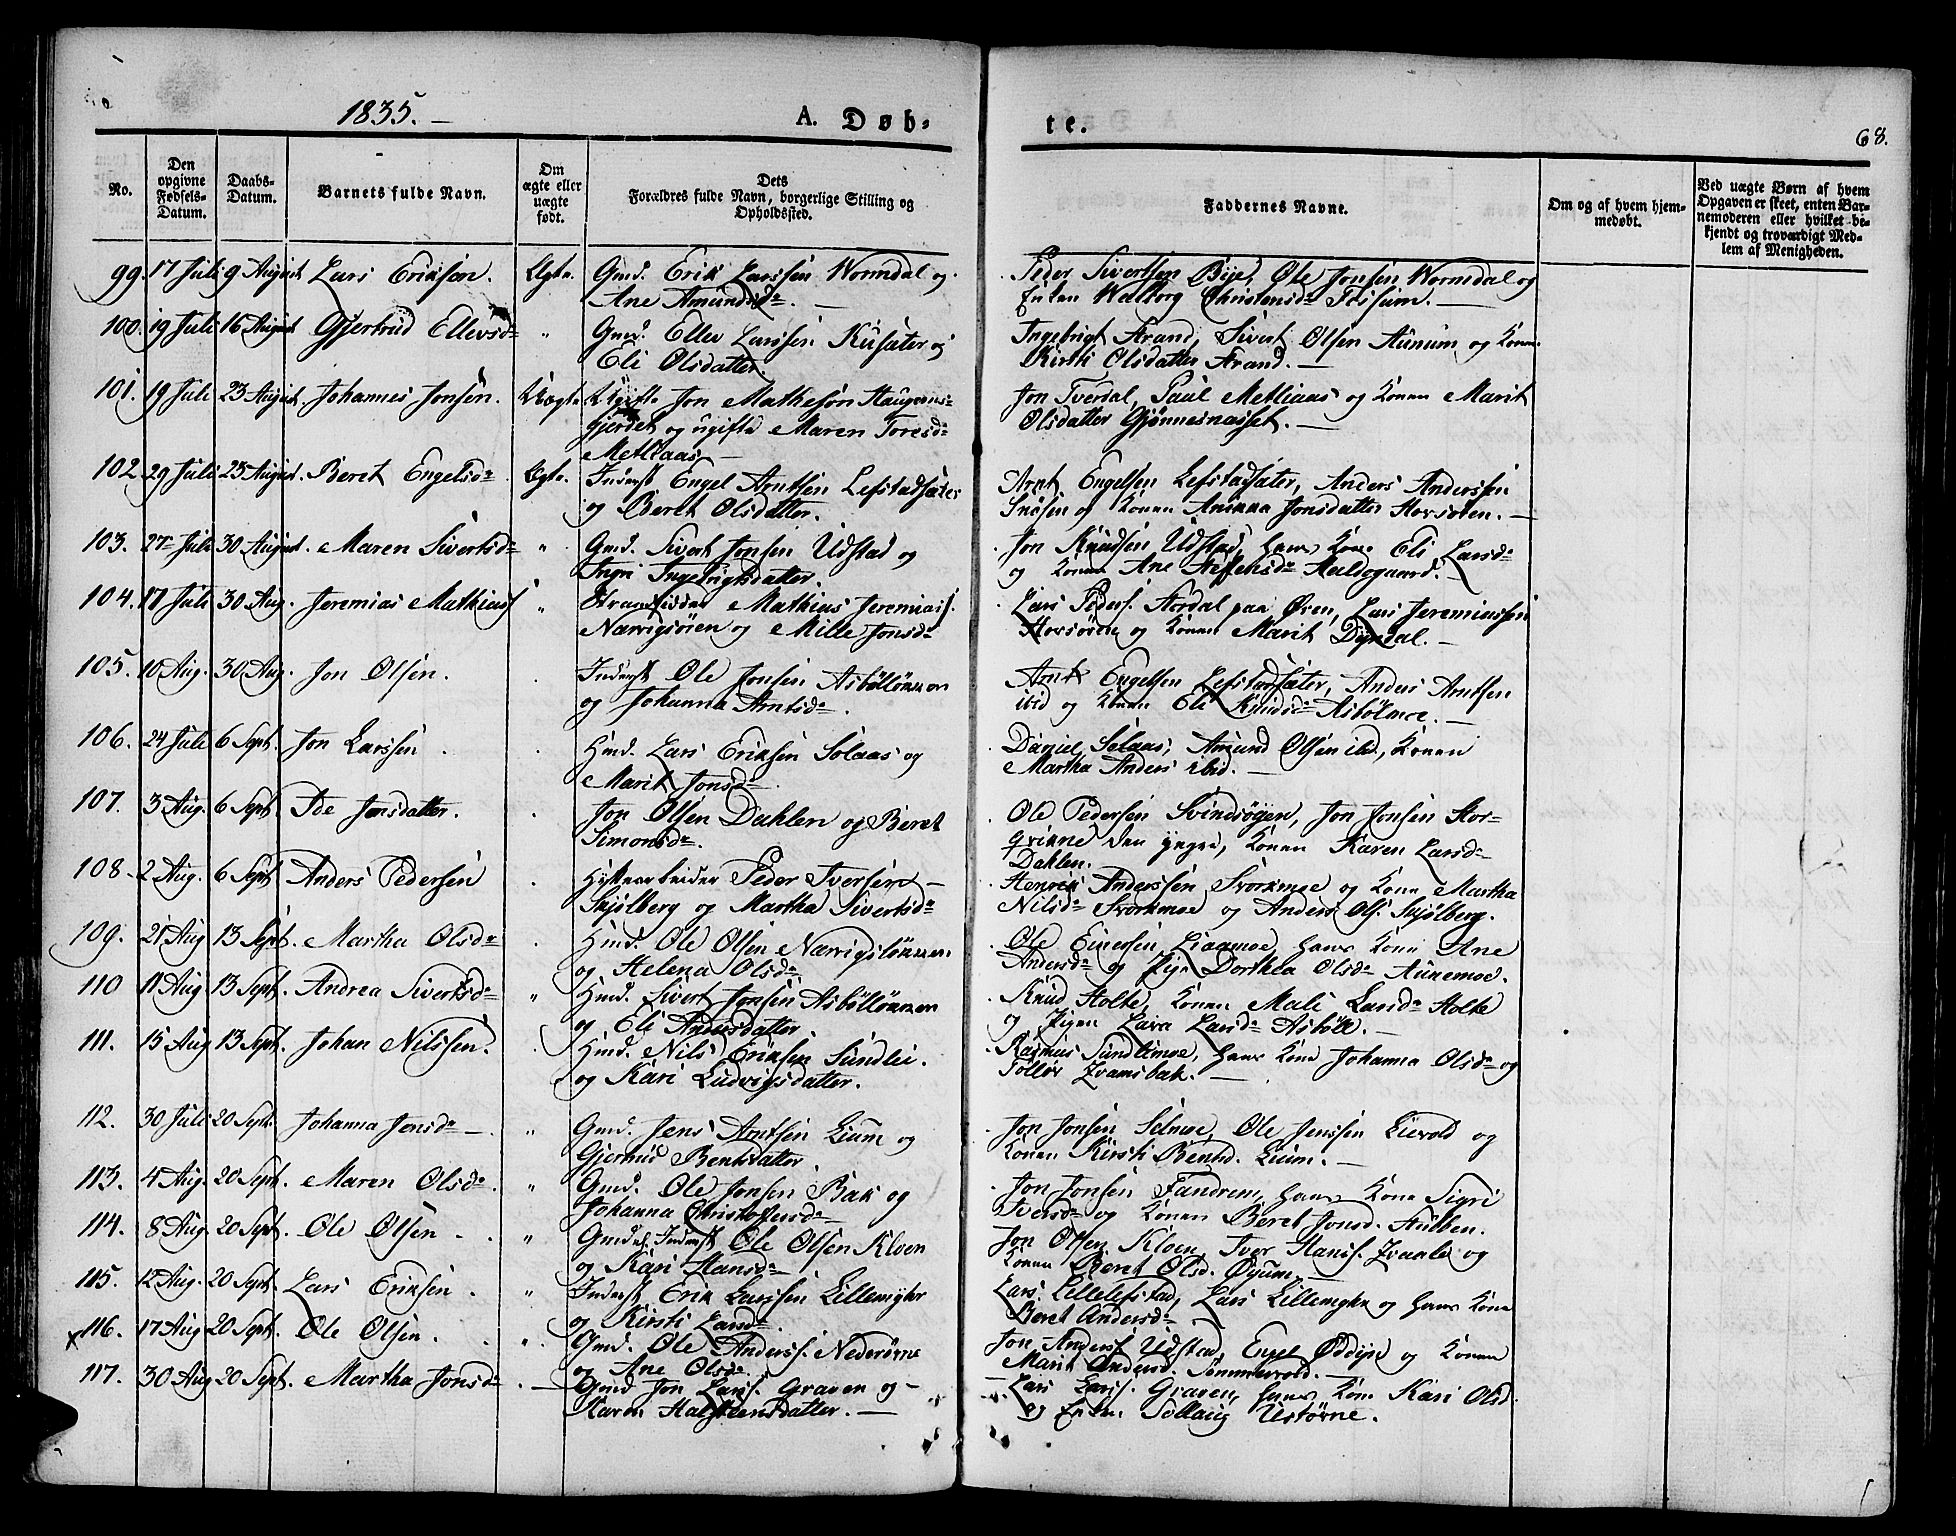 1835. —
A. Døb-
te.
68.
No.
Den opgivne Fødsels-Datum.
Daabs-Datum.
Barnets fulde Navn.
Om ægte eller uægte født.
Dets Forældres fulde Navn, borgerlige Stilling og Opholdssted.
Faddernes Navne.
Om og af hvem hjem-medøbt.
Ved uægte Børn af hvem Opgaven er skeet, enten Bar-nemoderen eller hvilket be-kjendt og troværdigt Med-lem af Menigheden.
99. 17 Juli 9 August Lars Eriksen. Ægte. Gmd. Erik Larssen Wormdal og Peder Sivertsen Bye, Ole Jonsen Wormdal og
Ane Amundsd. — Enken Walborg Christensd. Fossum. —
100. 19 Juli 16 August Gjertrud Ellevsd. " Gmd. Ellev Larssen Kusæter og Ingebrigt Strand, Sivert Olsen Aunum og Konen
Eli Olsdatter. Kirsti Olsdatter Strand. —
101. 19 Juli 23 August. Johannes Jonsen. Uægte. Ugifte Jon Mathesøn Haugens- Jon Tverdal, Paul Metliaas og Konen Marit
gjerdet og ugifte Maren Toresd. Olsdatter Gjønnesnasset. —
Metliaas. —
102 29 Juli 23 August. Beret Engelsd. Ægte. Inderst Engel Arntsen Lefstadsæter Arnt Engelsen Lefstadsæter, Anders Anderssen
og Beret Olsdatter. Snøsen og Konen Anna Jonsdatter Horsøren. —
103. 27 Juli 30 August. Maren Sivertsd. " Gmd. Sivert Jonsen Udstad og Jon Knudsen Udstad, hans Kone Eli Larsd.
Ingri Ingebrigtsdatter. og Konen Ane Steffensd. Haldogaard. —
104. 17 Juli 30 Aug. Jeremias Mathiass. " Strandsidder Mathias Jeremiass. Lars Peders. Stordal paa Øren, Lars Jeremiassen
Nærvigsøien og Mille Jonsd. Horsøren og Konen Marit Dyrdal. —
105. 10 Aug. 30 Aug. Jon Olsen. Inderst Ole Jonsen Asbøllønmen Arnt Engelsen Lefstadsæter, Anders Arntsen
og Johanna Arntsd. ibid og Konen Eli Knudsd. Asbølmoe. —
106. 24 Juli 6 Sept. Jon Larssen Hmd. Lars Eriksen Solaas og Daniel Solaas, Amund Olsen ibid, Konen
Marit Jonsd. Martha Anders ibid. —
107. 3 Aug. 6 Sept. Ide Jonsdatter. Jon Olsen Dahlen og Beret Ole Pedersen Svindsøgen, Jon Jonsen Stor-
Simonsd. grinne den yngre, Konen Karen Larsd.
Dahlen.
108. 2 Aug. 6 Sept Anders Pedersen Hyttearbeider Peder Iversen — Henrik Anderssen Svorkmoe og Kone Martha
Skjølberg og Martha Sivertsd. Nilsd. Svorkmoe og Anders Ols. Skjølberg.
109. 21 Aug 13 Sept. Martha Olsd. Hmd. Ole Olsen Nærvigslønmen Ole Einersen Liaamoe, hans Kone Ane
og Helena Olsd. Andersd. og Pige Dorthea Olsd. Aunemoe.
110 11 Aug. 13 Sept. Andrea Sivertsd. " Hmd. Sivert Jonsen Asbøllønmen Knud Holte, Konen Mali Larsd. Holte
og Eli Andersdatter. og Pigen Lava Larsd. Asbøll. —
111. 15 Aug 13 Sept. Johan Nilssen. Hmd. Nils Eriksen Sundlei Rasmus Sundlimoe, hans Kone Johanna Olsd. og
og Kari Ludvigsdatter. Tollør Kvamsbak. —
112. 30 Juli 20 Sept. Johanna Jensd. — " Gmd. Jens Arntsen Lium og Jon Jonsen Selmoe, Ole Jenssen Lievold og
Gjertrud Bentsdatter. Konen Kirsti Bentsd. Lium. —
113. 4 Aug. 20 Sept. Maren Olsd. " Gmd. Ole Jonsen Bak og Jon Jonsen Fandrem, hans Kone Sigri
Johanna Christophersd. Iversd. og Konen Beret Jonsd. Stubben.
114. 8 Aug. 20 Sept. Ole Olsen. " Gmd. Inderst Ole Olsen Kloen Jon Olsen Kloen, Iver Hans. Kvaale og
og Kari Hansd. Konen Beret Olsd. Øyum. —
115. 12 Aug. 20 Sept. Lars Eriksen. " Inderst Erik Larssen Lillemyhr Lars Lillelefstad, Lars Lillemyhr og hans Kone
og Kirsti Larsd. Beret Andersd.
x 116. 17 Aug 20 Sept. Ole Olsen. " Gmd. Ole Anderss. Nederørne Jon Anders. Udstad, Engel Oddyn og Konen
og Ane Olsd. Marit Andersd. Sommervold. —
117. 30 Aug 20 Sept. Martha Jonsd. — Gmd Jon Larss. Graven og — Lars Larss. Graven, hans Kone Kari Olsd.
Karen Halsteensdatter. — og Enken Sollaug Ustørne.